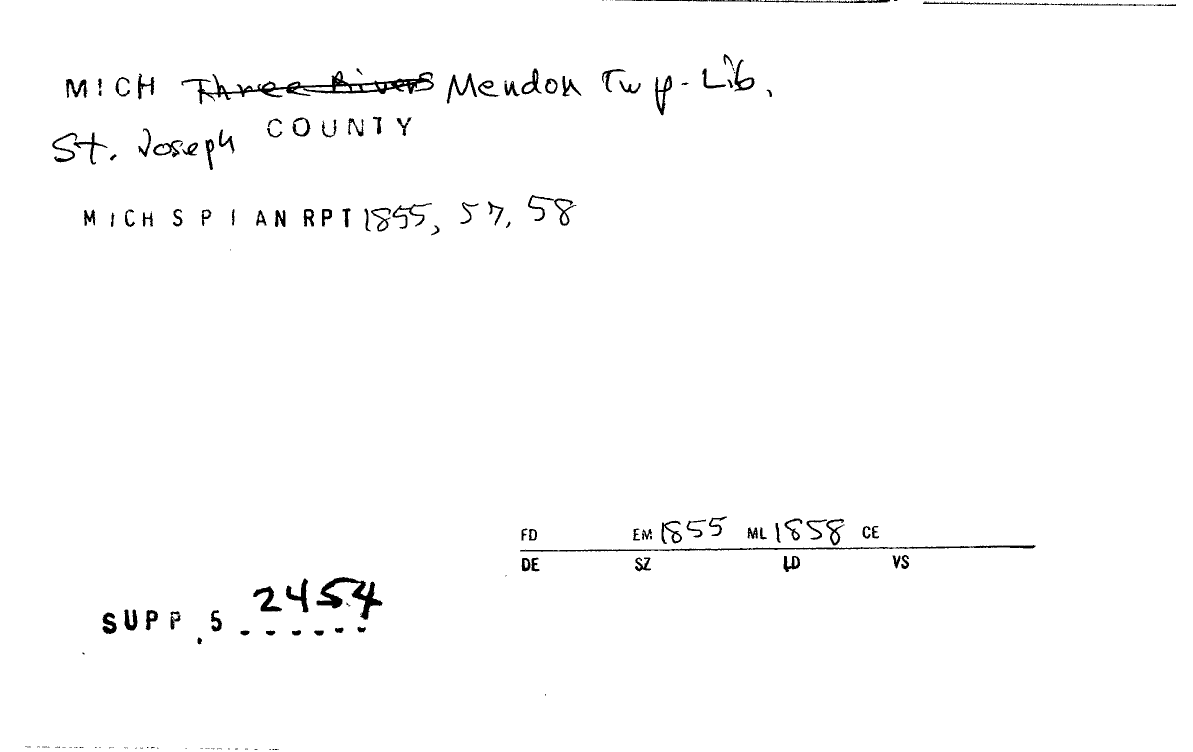 MICH Three Rivers Mendon Twp-Lib.
St. Joseph COUNTY
MICH S P I AN RPT 1855, 57, 58
FD EM 1855 ML 1858 CE
DE SZ LD VS
SUPP.5 2454